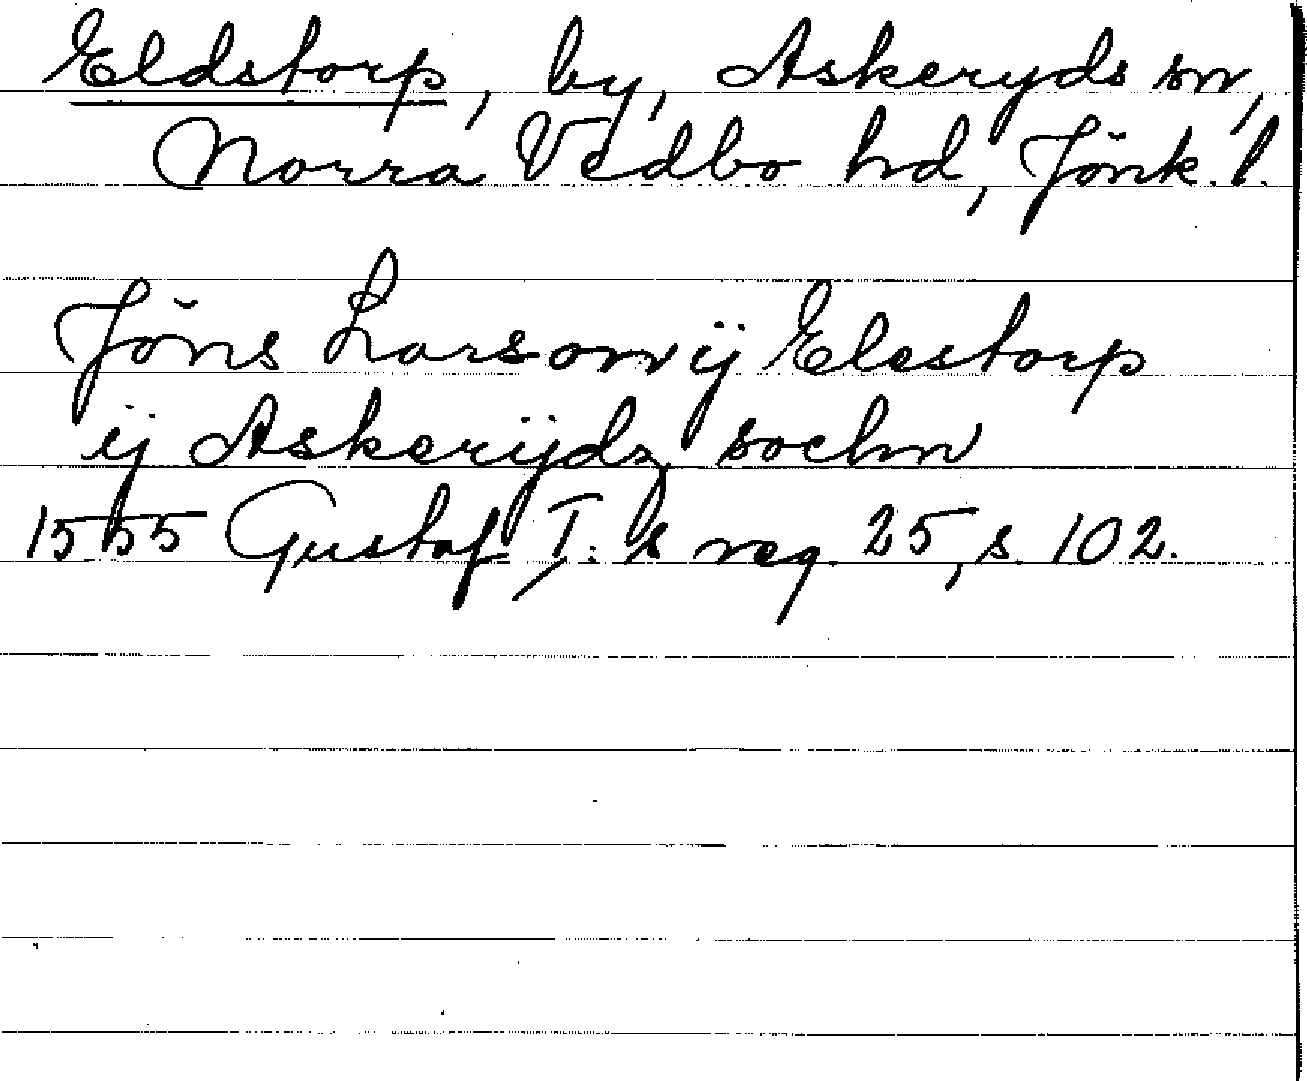 Eldstorp, by, Askeryds sn,
Norra Vedbo hd, Jönk. l.
Jöns Larsonn ij Elestorp
ij Askerijdz sochn
1555 Gustaf I:s reg. 25, s. 102.